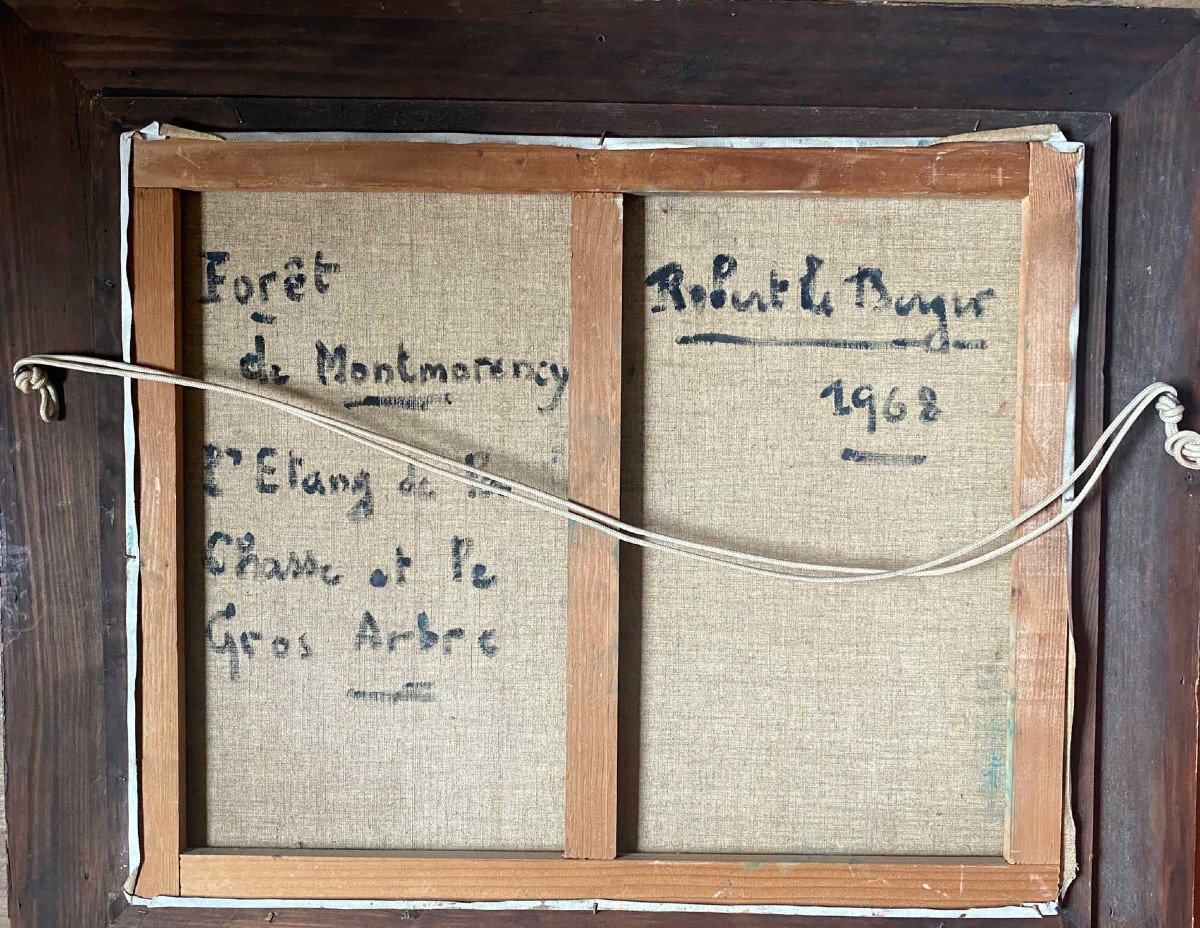 Forêt
de Montmorency
l'Etang de la
Chasse et le
Gros Arbre
Robert le Berger
1968